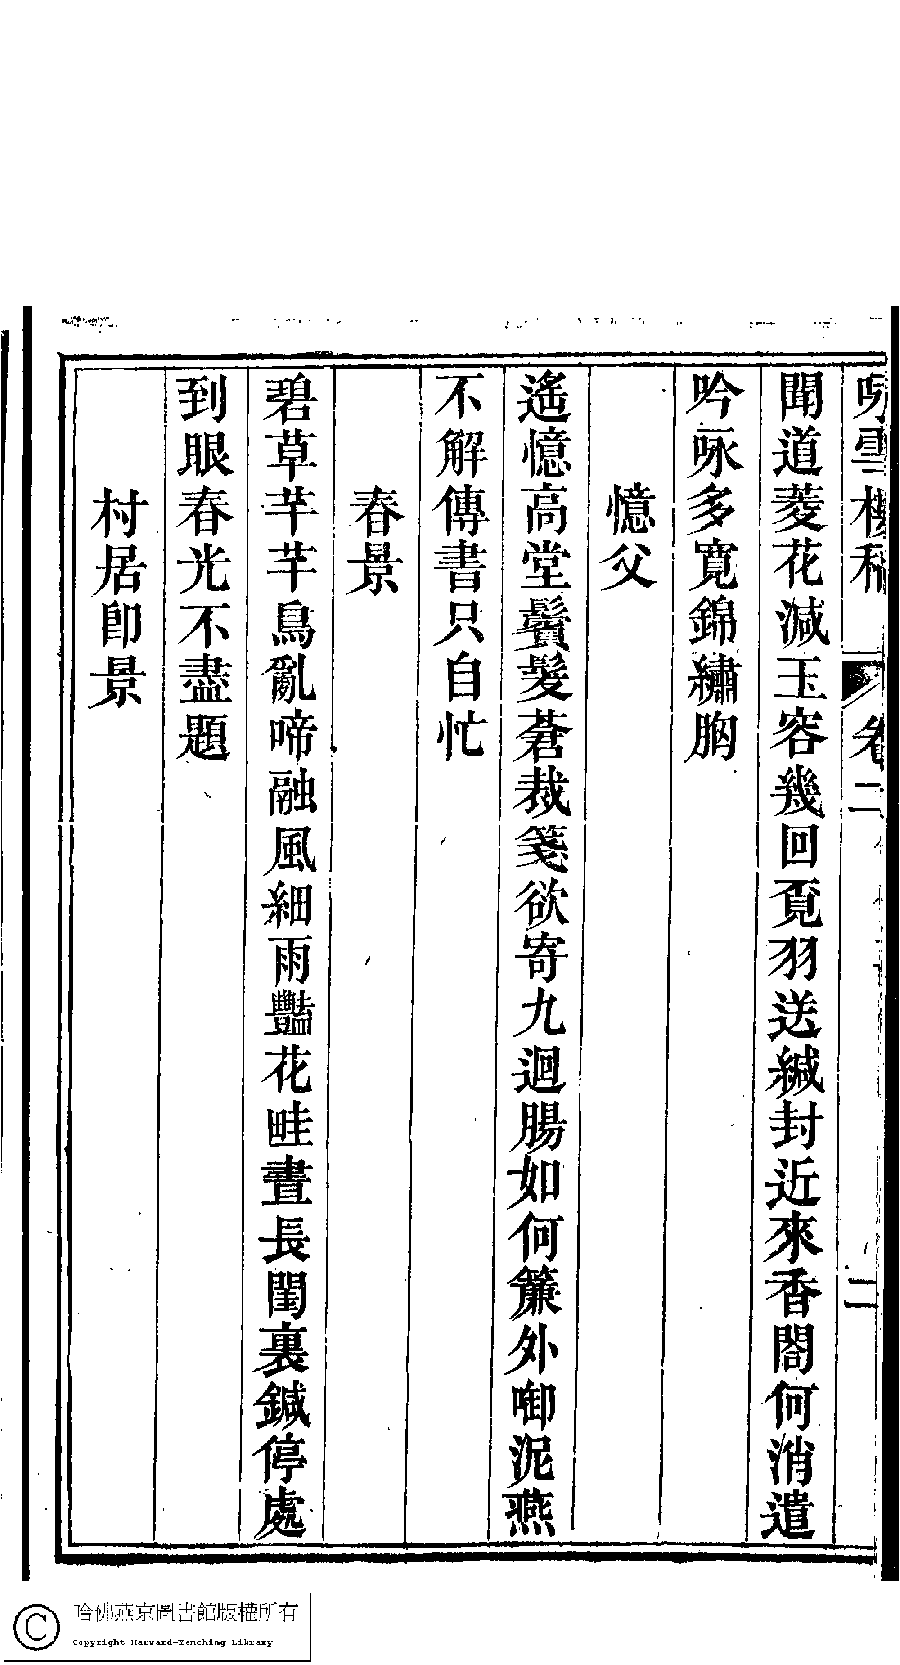 咏雪樓稿 卷二 二
聞道菱花減玉容幾回覓羽送緘封近來香閣何消遣
吟咏多寬錦繡胸
憶父
遙憶高堂鬢髮蒼裁箋欲寄九迴腸如何簾外啣泥燕
不解傳書只自忙
春景
碧草芊芊鳥亂啼融風細雨豔花畦晝長閨裏鍼停處
到眼春光不盡題
村居卽景
哈佛燕京圖書館版權所有
Copyright Harvard-Yenching Library